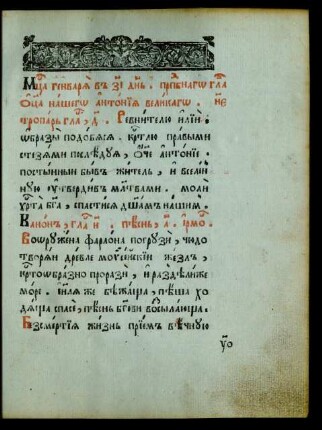 Мц҃а генваря въ з҃і днь. прпⷣбнагѡ
ѻц҃а нашегѡ антѡнїя великагѡ.
тропарь гла, д҃. Ревнителю илїи
ѡбразы подобѧсѧ. крт҃лю правыми
стезѧми послѣдуѧ, ѻ҃че антѡнїе.
пꙋстынный бывъ житель, и вселен
нꙋю ᲂу҆твердивъ мл҃твами. моли
хрт҃а бг҃а, спастисѧ дш҃амъ нашим.
Канон, гла и҃. пѣснь, а҃. ірмо.
Воѡрꙋжена фараѡна погрꙋзи, чюдо
творѧи древле моѵсейскїи жезлъ,
крт҃оѡбразно прорази, и раздѣлиже
море. і҆и҃лѧ же бѣжаща, пѣша хо
дѧща спасе, пѣснь бг҃ови восылающа.
Безсмертїѧ жизнь прїемъ вѣчнꙋю